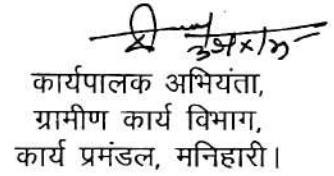 कार्यपालक अभियंता,
ग्रामीण कार्य विभाग,
कार्य प्रमंडल, मनिहारी।